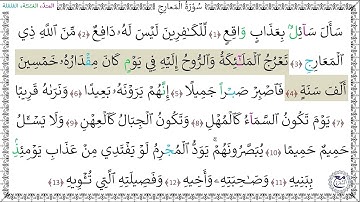 سُورَةُ المَعَارِجِ
سَأَلَ سَآئِلٌۢ بِعَذَابٍ وَاقِعٍ (1) لِّلْكَٰفِرِينَ لَيْسَ لَهُۥ دَافِعٌ (2) مِّنَ ٱللَّهِ ذِي
ٱلْمَعَارِجِ (3) تَعْرُجُ ٱلْمَلَٰٓئِكَةُ وَٱلرُّوحُ إِلَيْهِ فِي يَوْمٍ كَانَ مِقْدَارُهُۥ خَمْسِينَ
أَلْفَ سَنَةٍ (4) فَٱصْبِرْ صَبْرًا جَمِيلًا (5) إِنَّهُمْ يَرَوْنَهُۥ بَعِيدًا (6) وَنَرَىٰهُ قَرِيبًا
(7) يَوْمَ تَكُونُ ٱلسَّمَآءُ كَٱلْمُهْلِ (8) وَتَكُونُ ٱلْجِبَالُ كَٱلْعِهْنِ (9) وَلَا يَسْـَٔلُ
حَمِيمٌ حَمِيمًا (10) يُبَصَّرُونَهُمْ يَوَدُّ ٱلْمُجْرِمُ لَوْ يَفْتَدِي مِنْ عَذَابِ يَوْمِئِذٍۭ
بِبَنِيهِ (11) وَصَٰحِبَتِهِۦ وَأَخِيهِ (12) وَفَصِيلَتِهِ ٱلَّتِي تُـْٔوِيهِ (13)